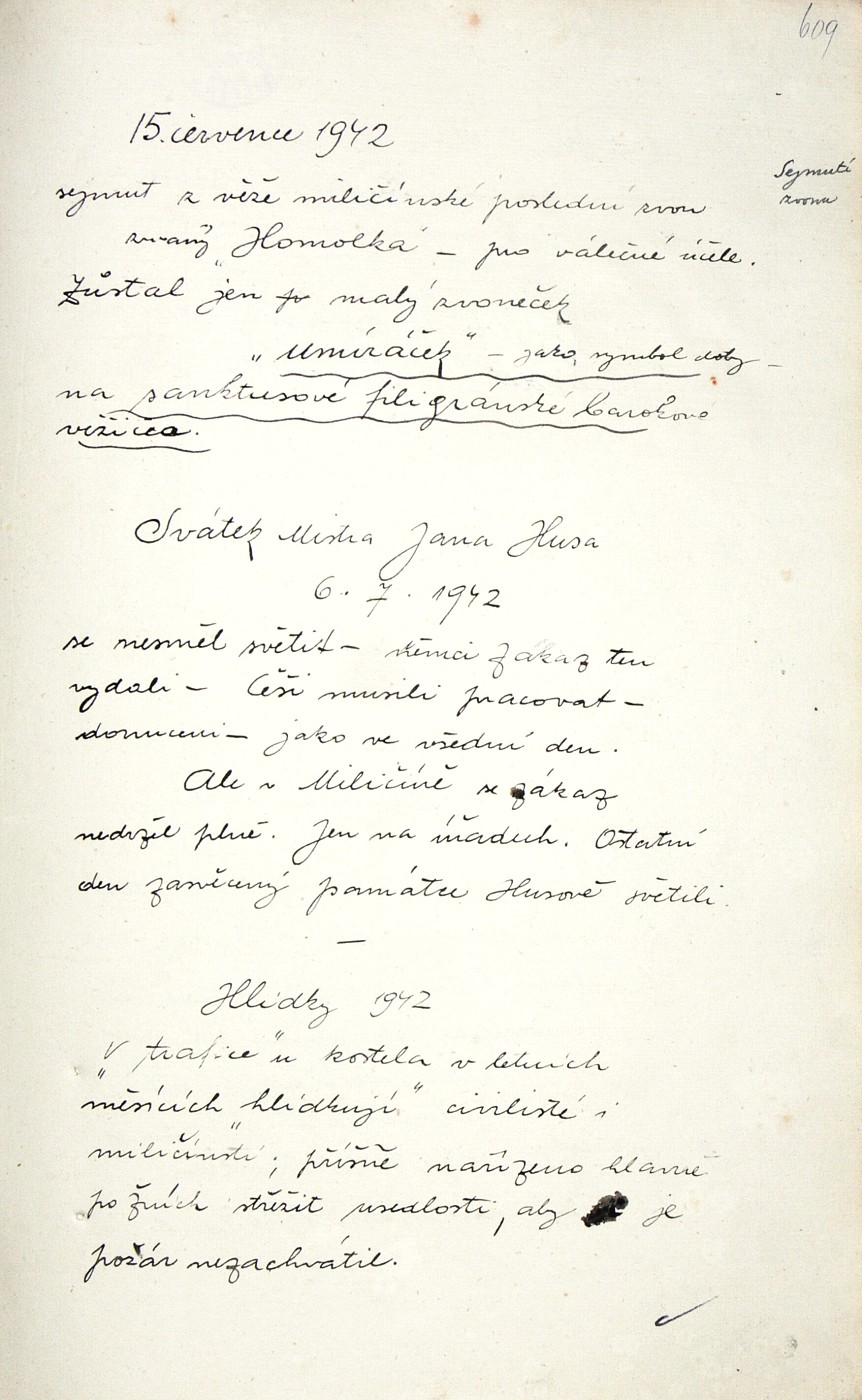 609
15. července 1942
Sejmutí
zvonu
sejmut z věže miličínské poslední zvon
zvaný „Homolka" – pro válečné účele.
Zůstal jen malý zvoneček
„Umíráček" – jako symbol doby –
na sanktusové filigránské barokové
věžičce.
Svátek Mistra Jana Husa
6. 7. 1942
se nesměl světit – němci zákaz ten
vydali – Češi musili pracovat –
donuceni – jako ve všední den.
Ale v Miličíně se zákaz
nedržel plně. Jen na úřadech. Ostatní
den zasvěcený památce Husově světili.
—
Hlídky 1942
„V trafice" u kostela v letních
měsících „hlídkují" civilisté i
miličínští; přísně nařízeno hlavně
po žních střežit usedlosti, aby je
požár nezachvátil.